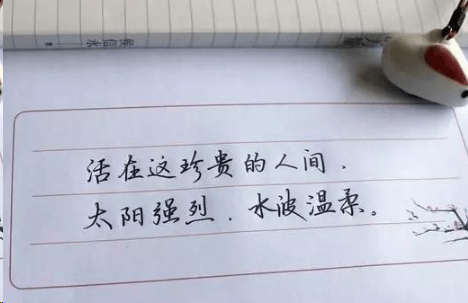 活在这珍贵的人间.
太阳强烈.水波温柔。